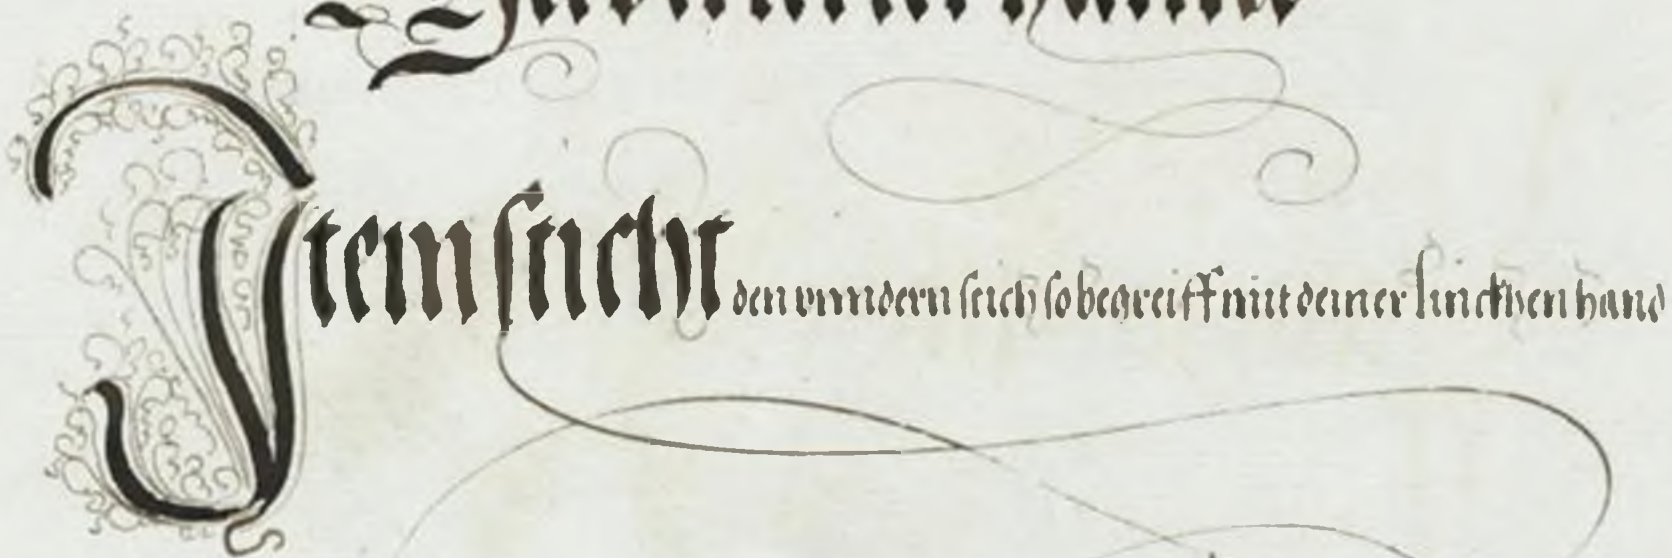 Item sticht den vnndern stich so begreiff mitt deiner linckhen hand